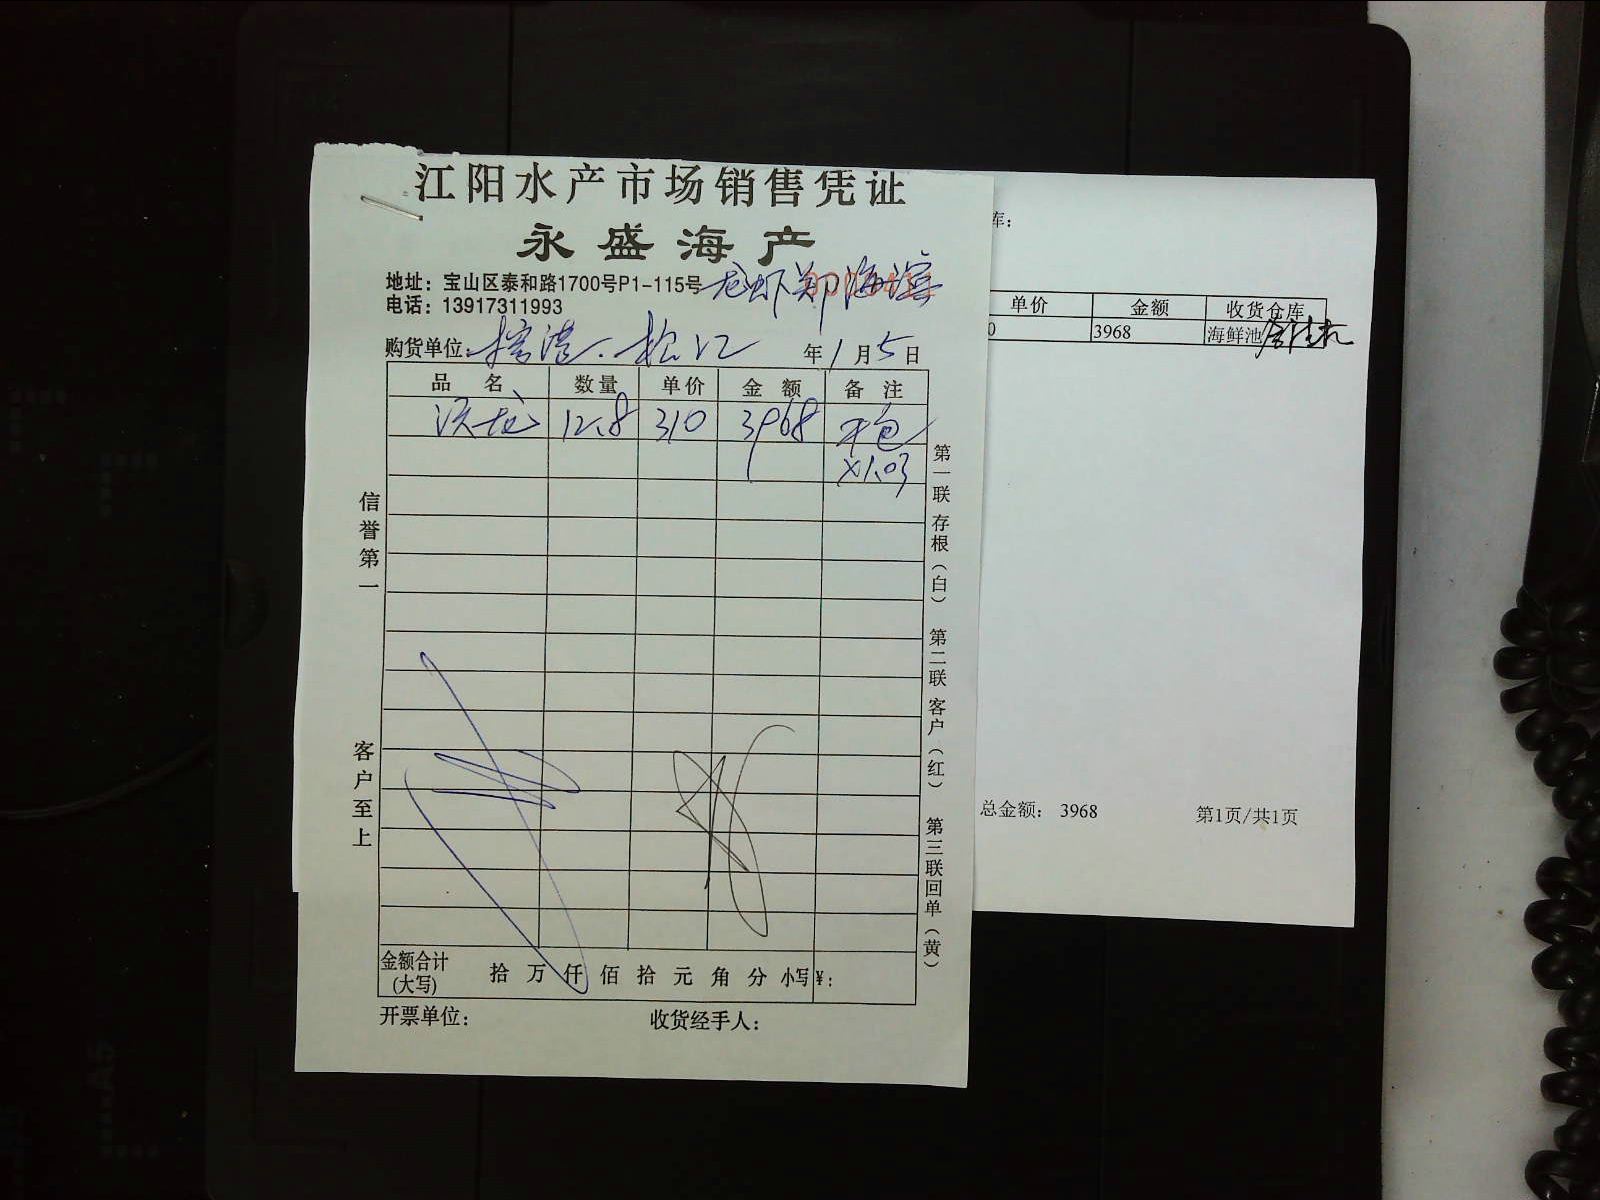 江阳水产市场销售凭证
永盛海产
地址：宝山区泰和路1700号P1-115号 龙虾郑海滨
电话：13917311993
购货单位： 松江 年1月5日
品名 数量 单价 金额 备注
澳龙 12.8 310 3968 平包
X1.03
信誉第一
客户至上
第一联存根（白） 第二联客户（红） 第三联回单（黄）
金额合计(大写) 拾 万 仟 佰 拾 元 角 分 小写¥：
开票单位： 收货经手人：
库：
单价 金额 收货仓库
0 3968 海鲜池
总金额： 3968 第1页/共1页